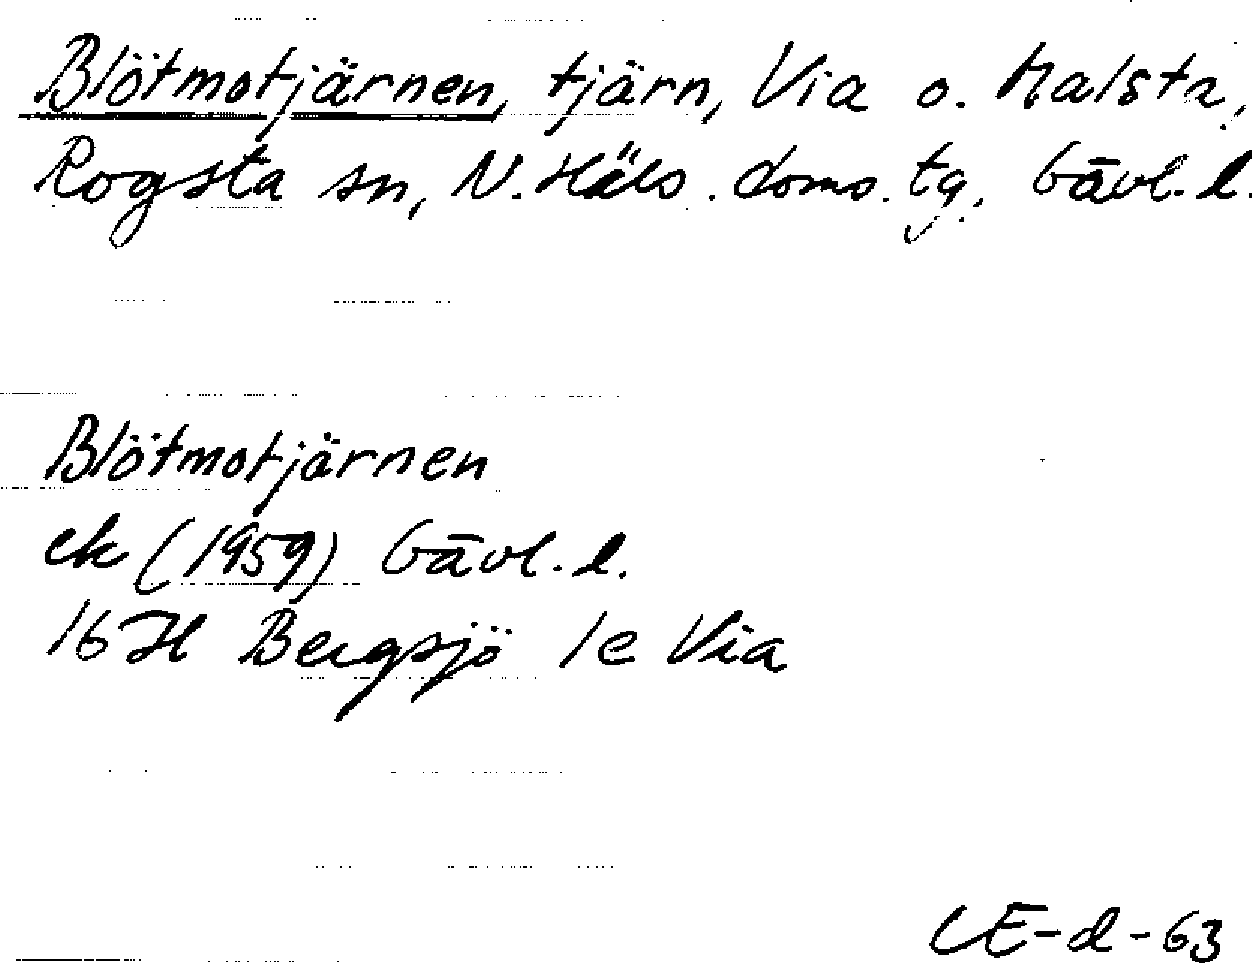 Blötmotjärnen, tjärn, Via o. Malsta,
Rogsta sn, N. Häls. doms. tg, Gävl. l.
Blötmotjärnen
ek (1959) Gävl. l.
16 H Bergsjö 1e Via
CE-d-63